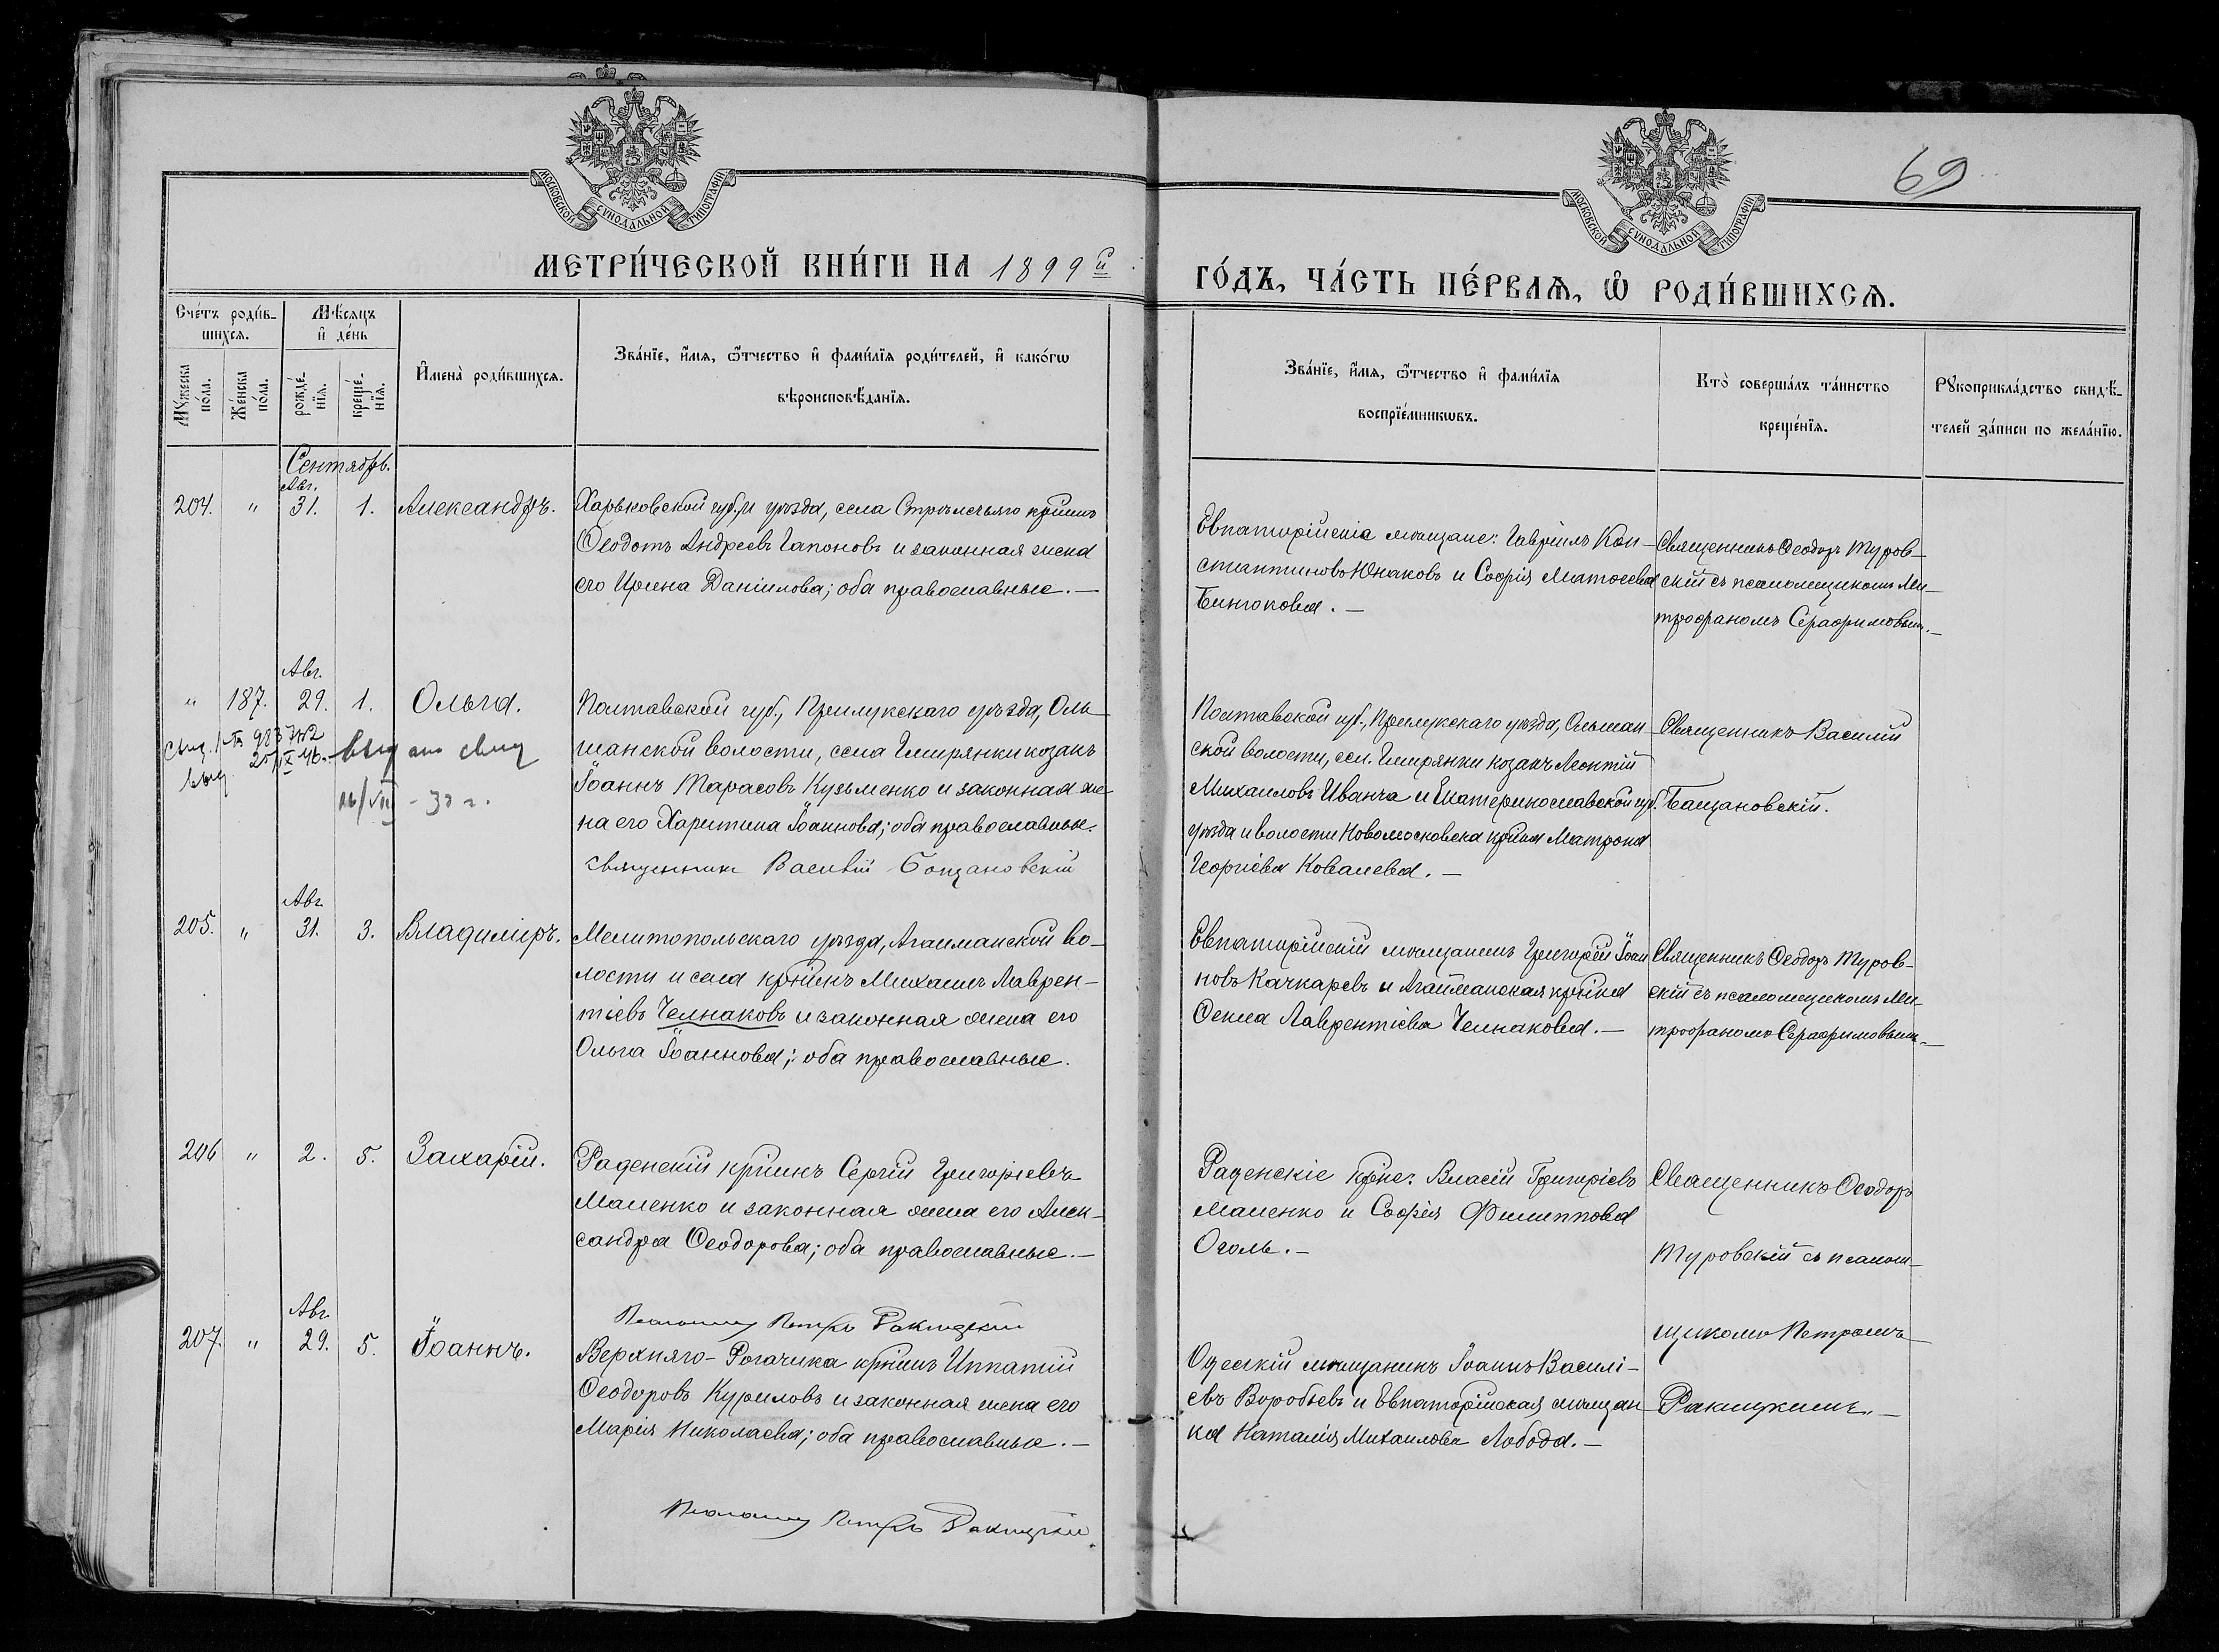 69
МОСКОВСКОЙ СУНОДАЛЬНОЙ ТИПОГРАФІИ
МОСКОВСКОЙ СУНОДАЛЬНОЙ ТИПОГРАФІИ
МЕТРИ́ЧЕСКОЙ КНИ́ГИ НА 1899й
ГО́ДЪ, ЧА́СТЬ ПЕ́РВАѦ, Ѡ҆ РОДИ́ВШИХСѦ.
Сче́тъ роди́в-
шихсѧ.
Мѣ́сѧцъ
и҆ де́нь
Мꙋ́жеска
по́ла.
Же́нска
по́ла.
рожде́-
нїѧ.
креще́-
нїѧ.
И҆мена̀ роди́вшихсѧ.
Зва́нїе, и҆́мѧ, ѻ҆́тчество и҆ фами́лїѧ роди́телей, и҆ како́гѡ
вѣроисповѣ́данїѧ.
Зва́нїе, и҆́мѧ, ѻ҆́тчество и҆ фами́лїѧ
воспрїе́мникѡвъ.
Кто̀ соверша́лъ та́инство
креще́нїѧ.
Рꙋкоприкла́дство свидѣ́-
телей за́писи по жела́нїю.
Сентябрь.
Авг.
204. " 31. 1. Александръ.
Харьковской губ. и уѣзда, села Стрѣлечьяго крнинъ
Ѳеодотъ Андреевъ Гапоновъ и законная жена
его Ирина Даніилова; оба православные.—
Евпаторійскіе мѣщане: Гавріилъ Кон-
стантиновъ Юнаковъ и Софія Матѳеева
Бинюкова.—
Священникъ Ѳеодоръ Туров-
скій съ псаломщикомъ Ми-
трофаномъ Серафимовымъ.—
Авг.
" 187. 29. 1. Ольга.
Полтавской губ., Прилукскаго уѣзда, Оль-
шанской волости, села Гмирянки козакъ
Іоаннъ Тарасовъ Кузьменко и законная же-
на его Харитина Іоаннова; оба православные.
Священник Василій Бощановскій
Полтавской губ., Прилукскаго уѣзда, Ольшан-
ской волости, сел. Гмирянки козакъ Леонтій
Михаиловъ Иванча и Екатеринославской губ.
уѣзда и волости Новомосковска крнка Матрона
Георгіева Ковалева.—
Священникъ Василій
Бащановскій.
Авг.
205. " 31. 3. Владиміръ.
Мелитопольскаго уѣзда, Агайманской во-
лости и села крнинъ Михаилъ Лаврен-
тіевъ Челнаковъ и законная жена его
Ольга Іоаннова; оба православные.
Евпаторійскій мѣщанинъ Григорій Іоан-
новъ Качкаревъ и Агайманская крнка
Ѳекла Лаврентіева Челнакова.—
Священникъ Ѳеодоръ Туров-
скій съ псаломщикомъ Ми-
трофаномъ Серафимовымъ.—
206 " 2. 5. Захарій.
Раденскій крнинъ Сергій Григоріевъ
Маленко и законная жена его Алек-
сандра Ѳеодорова; оба православные.—
Раденскіе крне: Власій Григоріевъ
Маленко и Софія Филиппова
Оголь.—
Священникъ Ѳеодоръ
Туровскій съ псалом-
щикомъ Петромъ
Ракицкимъ.—
Псаломщ Петръ Ракицкій
Авг.
207. " 29. 5. Іоаннъ.
Верхняго-Рогачика крнинъ Ипатій
Ѳеодоровъ Куриловъ и законная жена его
Марія Николаева; оба православные.—
Одесскій мѣщанинъ Іоаннъ Василі-
евъ Воробьевъ и Евпаторійская мѣщан-
ка Наталія Михаилова Лобода.—
Псаломщ Петръ Ракицкій